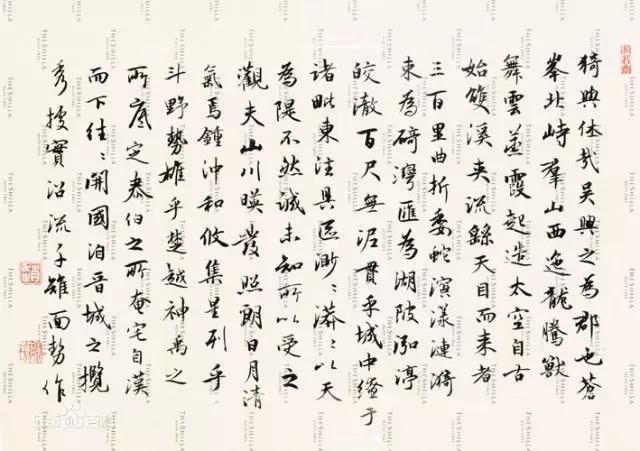 猗與休哉吳興之為郡也蒼
峯北峙羣山西迤龍騰獸
舞雲蒸霞起造太空自古
始雙溪夾流繇天目而來者
三百里曲折委蛇演漾漣漪
束為碕灣匯為湖陂泓渟
皎澈百尺無泥貫乎城中繚于
諸毗東注具區渺〻漭〻以天
為隄不然誠未知所以受之
觀夫山川暎發照朗日月清
氣焉鍾沖和攸集星列乎
斗野勢雄乎楚越神禹之
所底定泰伯之所奄宅自漢
而下往〻開國洎晉城之攬
秀據實沿流千雉面勢作
THE SHILLA
Baidu百科